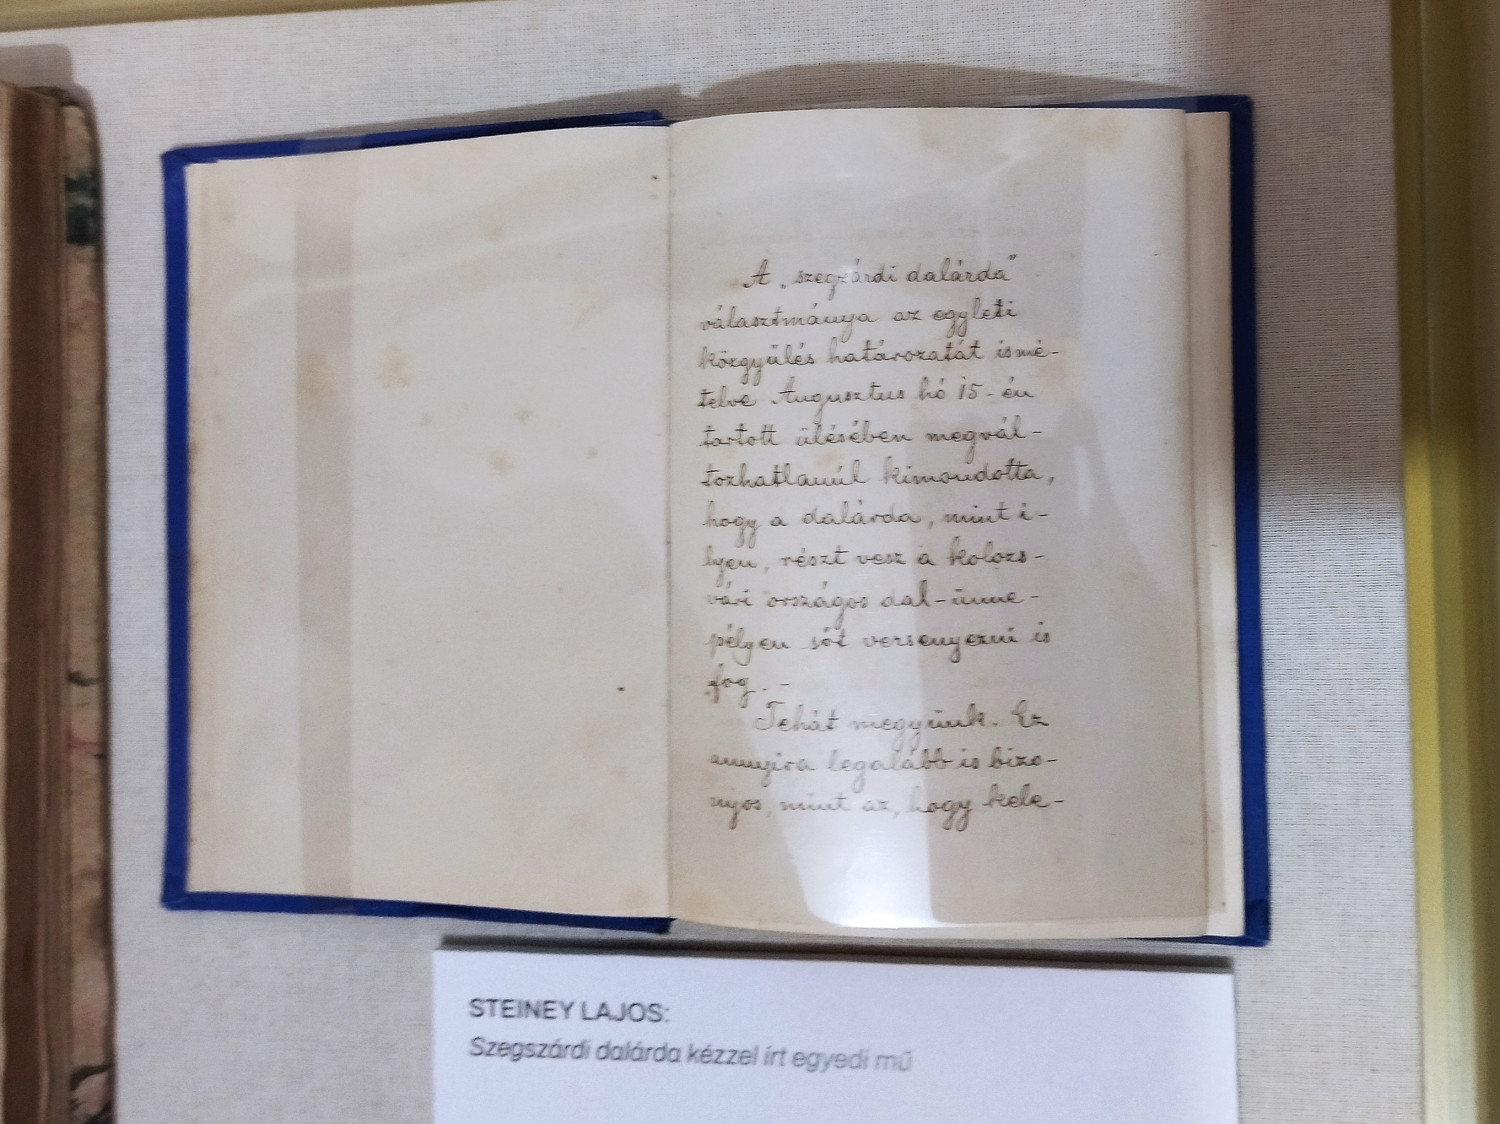 A „szegzárdi dalárda"
választmánya az egyleti
közgyülés határozatát ismé-
telve Augusztus hó 15-én
tartott ülésében megvál-
tozhatlanúl kimondotta,
hogy a dalárda, mint i-
lyen, részt vesz a kolozs-
vári országos dal-ünne-
pélyen sőt versenyezni is
fog. -
Tehát megyünk. Ez
annyira legalább is bizo-
nyos, mint az, hogy kele-
STEINEY LAJOS:
Szegszárdi dalárda kézzel írt egyedi mű